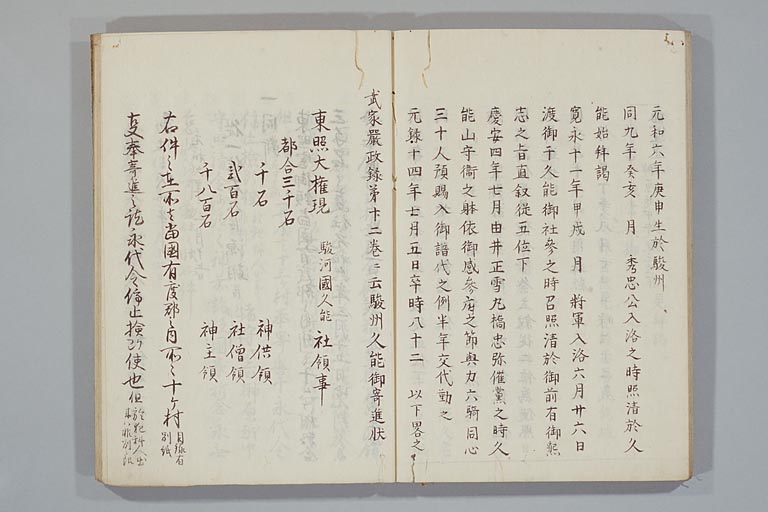 元和六年庚申生於駿州
同九年癸亥 月 秀忠公入洛之時照清於久
能始拝謁
寛永十一年甲戌 月 将軍入洛六月廿六日
渡御于久能御社参之時召照清於御前有御懇
志之旨直叙従五位下
慶安四年七月由井正雪丸橋忠弥催黨之時久
能山守衛之躰依御感参府之節與力六騎同心
三十人預賜入御譜代之例半年交代勤之
元録十四年七月五日卒時八十二 以下畧之
武家嚴政録第十二巻ニ云駿州久能御寄進状
東照大権現 駿河國久能 社領事
都合三千石
千石 神供領
弐百石 社僧領
千八百石 神主領
右件之在所者當國有度郡之内所々十ケ村 目録有別紙
奉寄進之訖永代令停止検断使也但